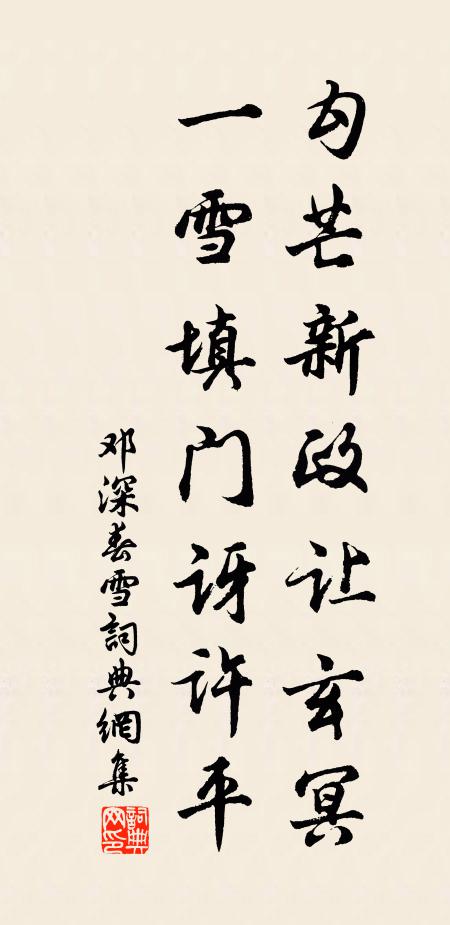 勾芒新政让玄冥
一雪填门讶许平
邓深春雪詞典網集
詞典网印